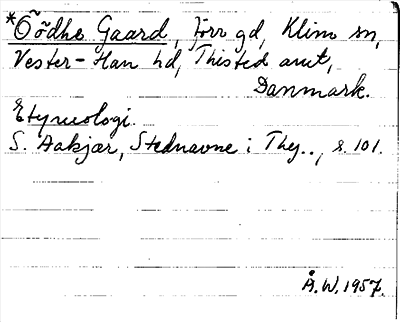 *Õõdhe Gaard, Förr gd, Klim sn,
Vester-Han hd, Thisted amt,
Danmark.
Etymologi.
S. Aakjær, Stednavne i Thy.., s. 101.
Å.W. 1957.